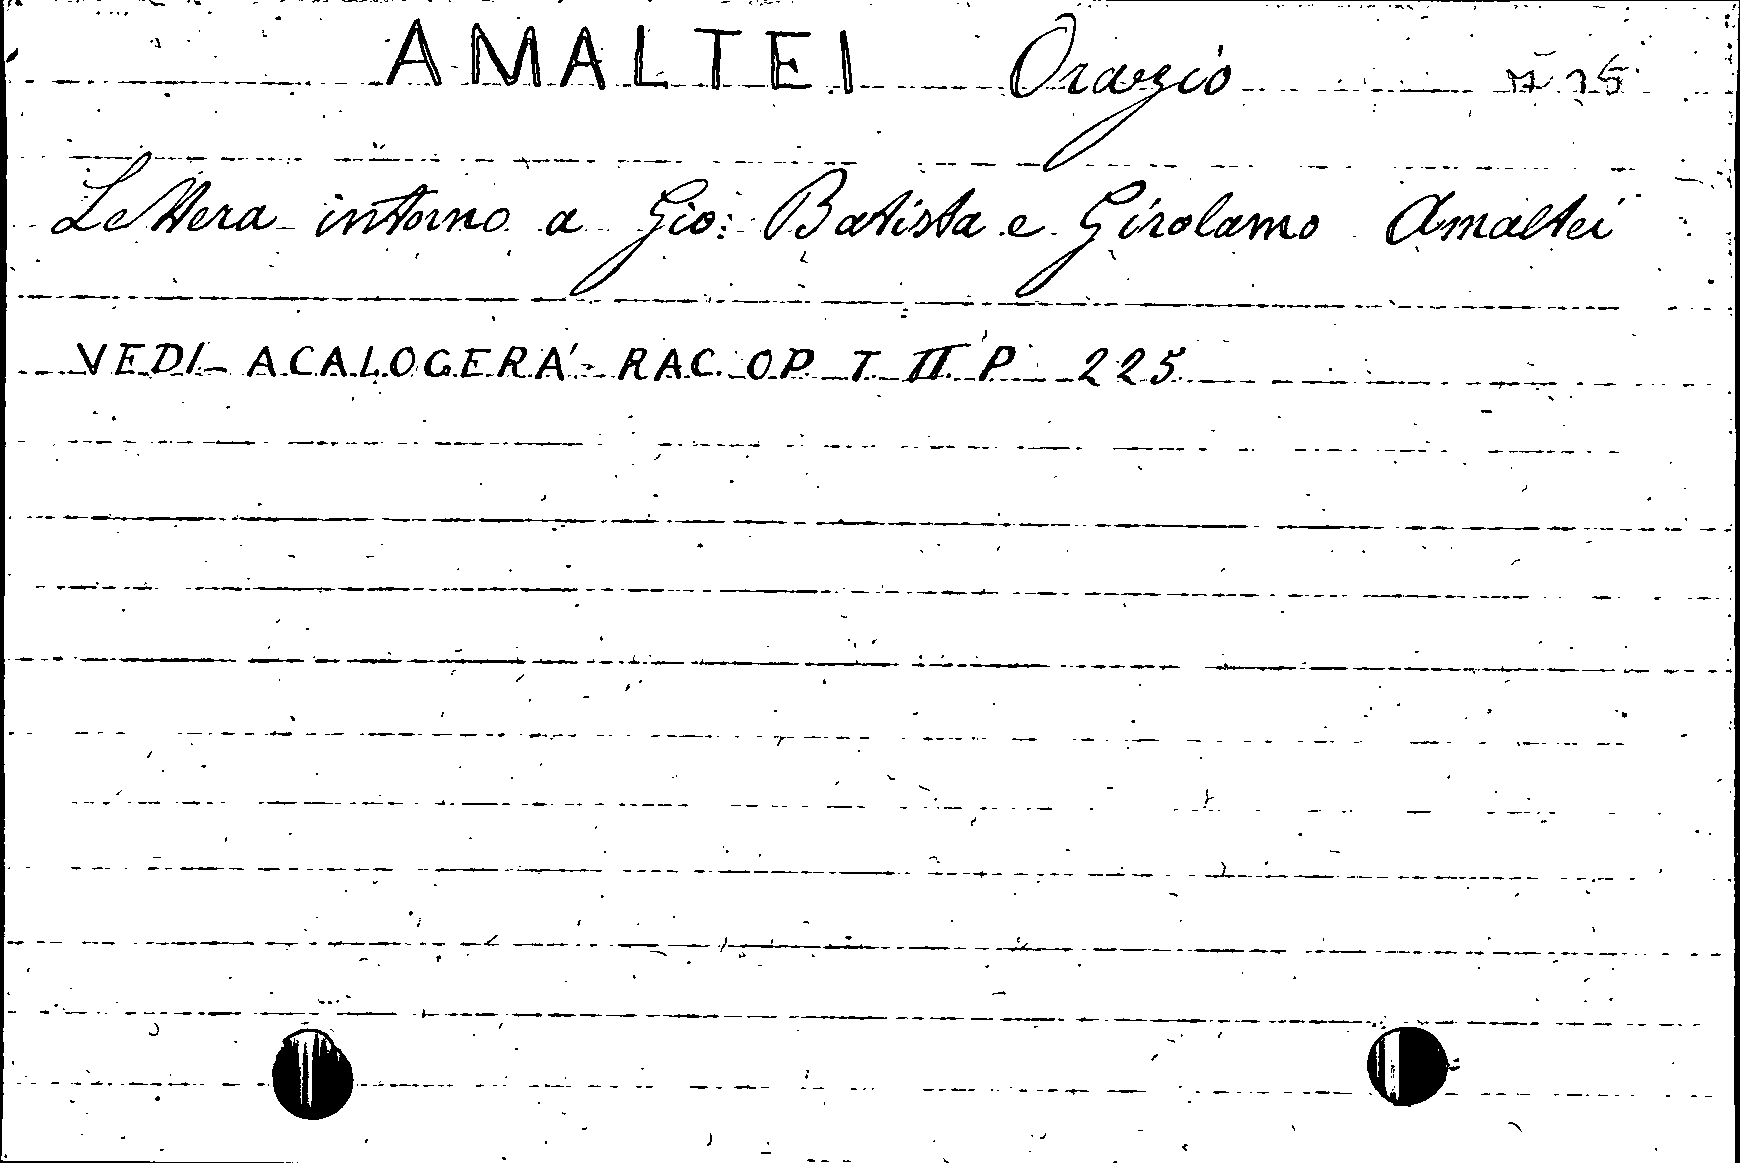 AMALTEI Orazio
Lettera intorno a Gio: Batista e Girolamo Amaltei
VEDI ACALOGERÀ RAC. OP T II P 225